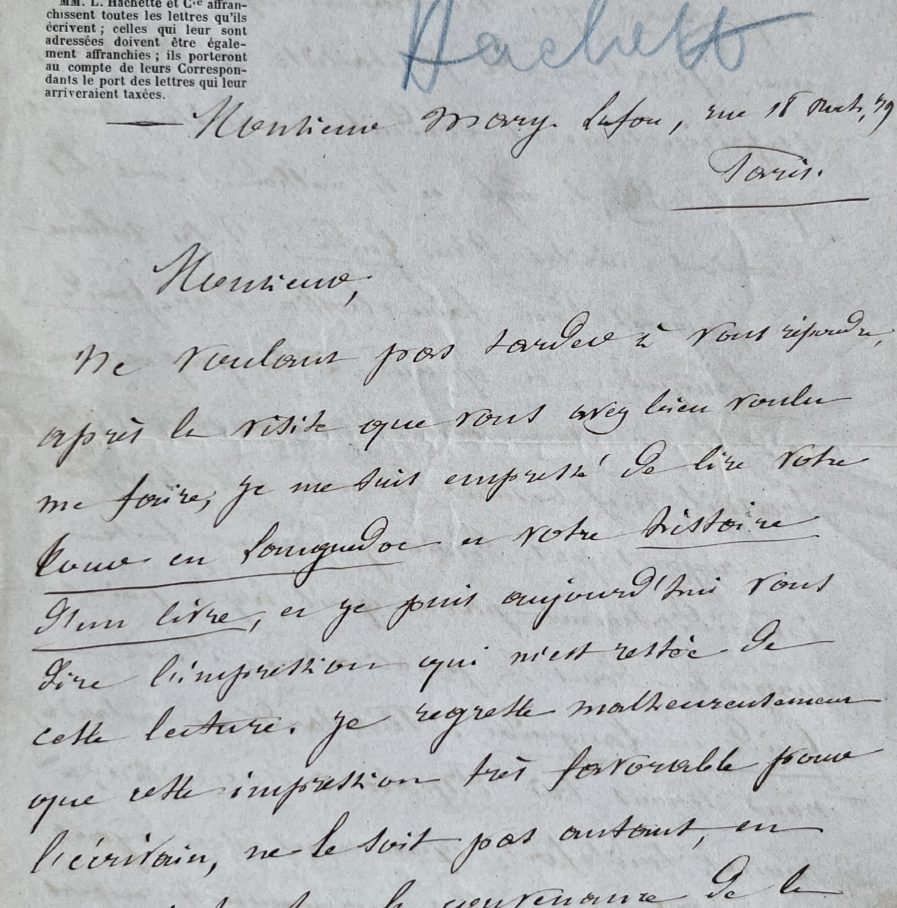 MM. L. Hachette et Cie affran-
chissent toutes les lettres qu'ils
écrivent ; celles qui leur sont
adressées doivent être égale-
ment affranchies ; ils porteront
au compte de leurs Correspon-
dants le port des lettres qui leur
arriveraient taxées.
Hachett
Monsieur Mary Lafon, rue 29
Paris.
Monsieur,
Ne voulant pas tarder à vous répondre,
après la visite que vous avez bien voulu
me faire, je me suis empressé de lire votre
en Languedoc et votre histoire
d'un livre, et je puis aujourd'hui vous
dire l'impression qui m'est restée de
cette lecture. Je regrette malheureusement
que cette impression très favorable pour
l'écrivain, ne le soit pas autant, en
la convenance de la